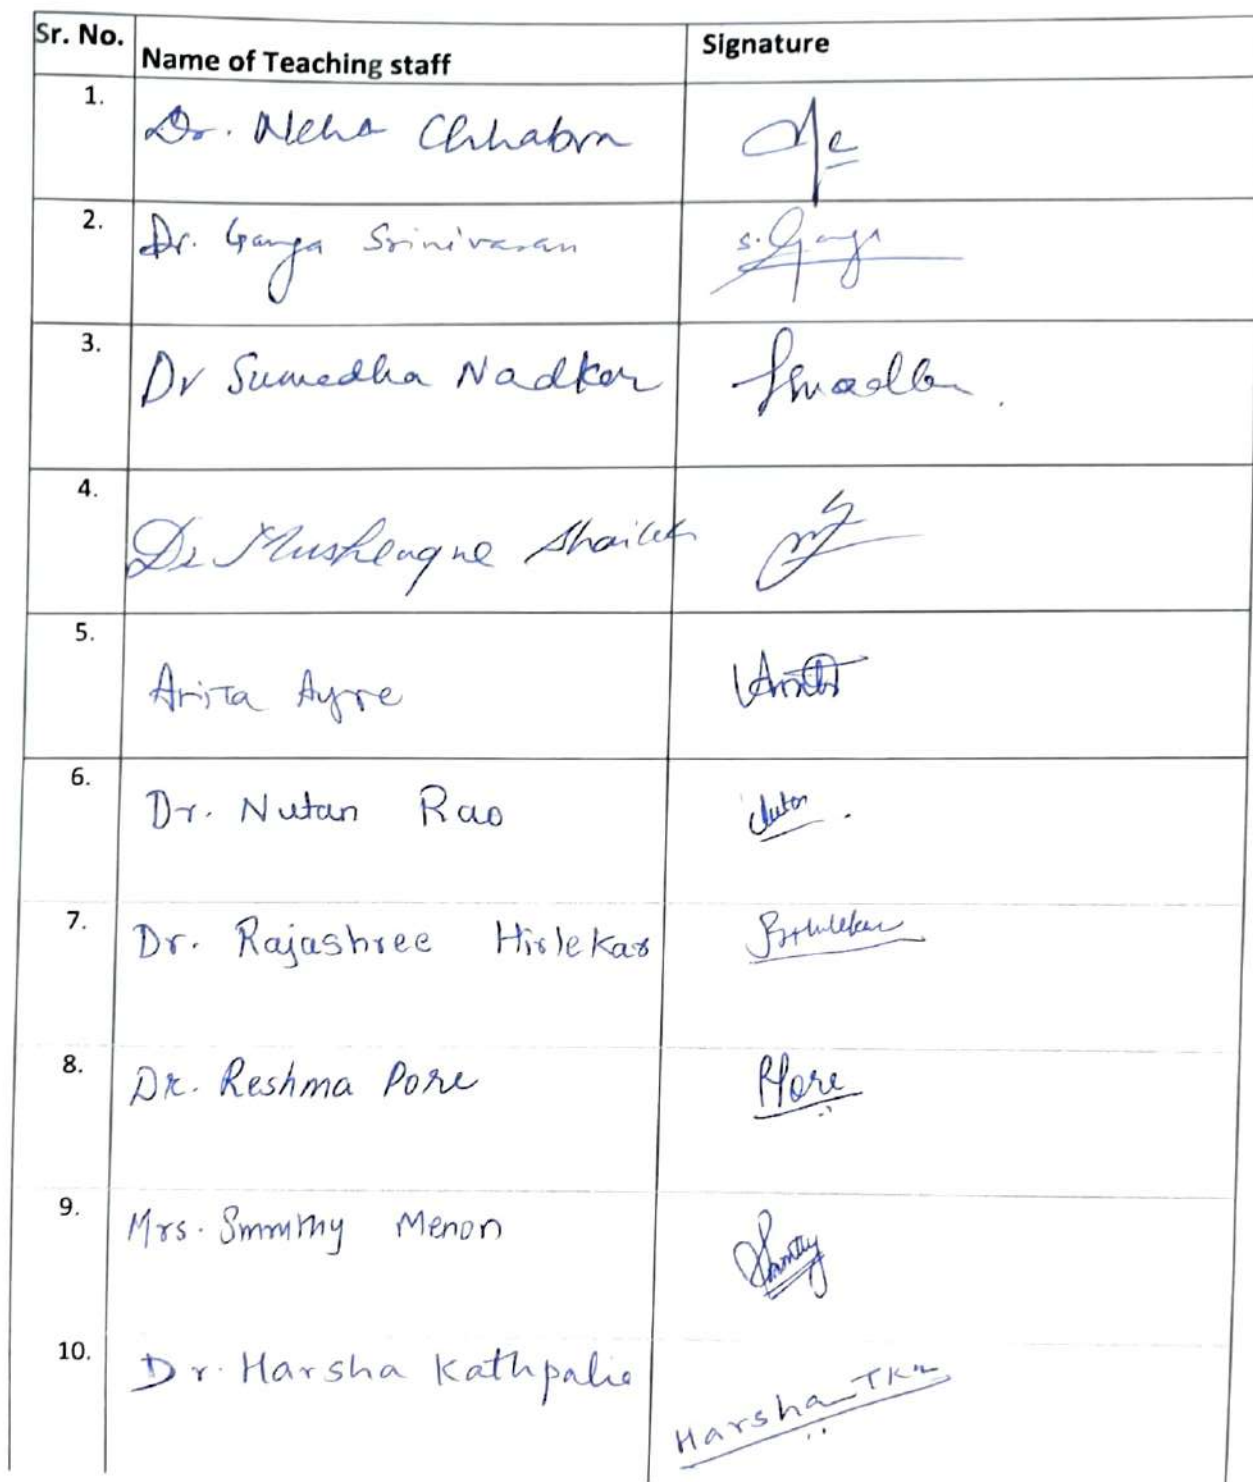 Sr. No. Name of Teaching staff Signature
1. Dr. Neha Chhabra
2. Dr. Ganga Srinivasan S. Ganga
3. Dr Sumedha Nadkar
4. Dr Mushlaque Shaikh
5. Arita Ayre
6. Dr. Nutan Rao Nutan
7. Dr. Rajashree Hirlekar
8. Dr. Reshma Pore RPore
9. Mrs. Smmithy Menon
10. Dr. Harsha Kathpalia Harsha TK